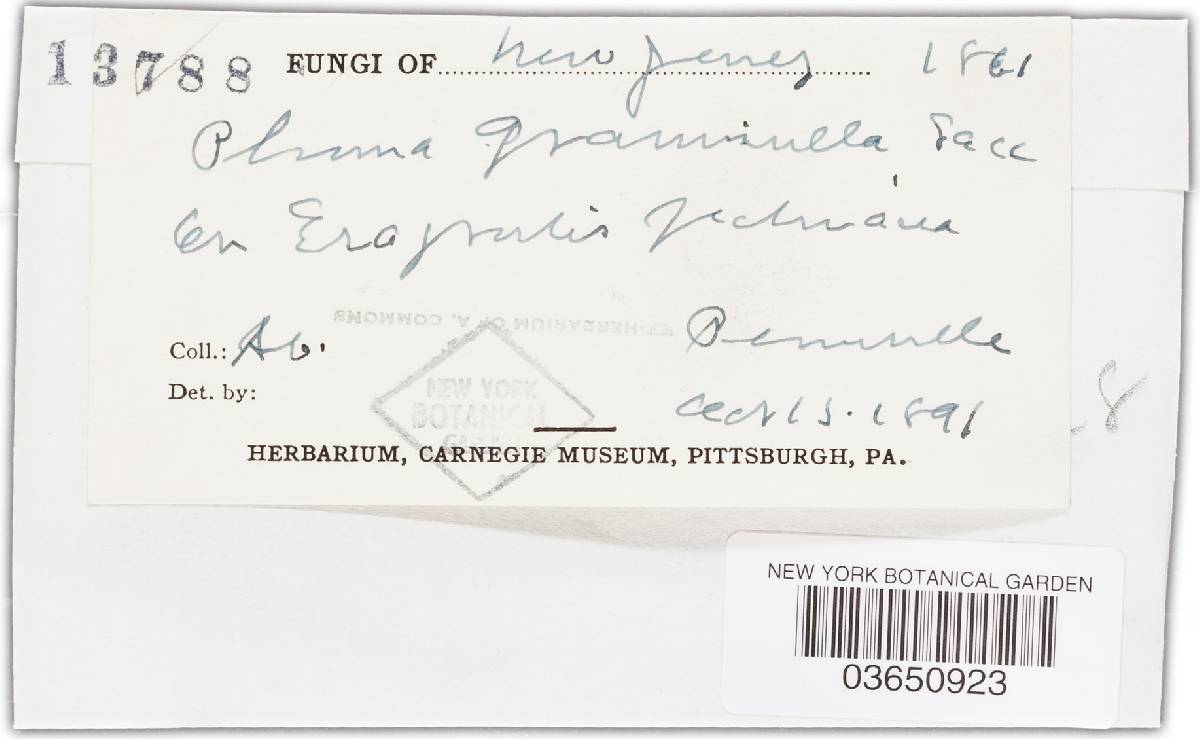 13788
FUNGI OF New Jersey 1861
Phoma graminella Sacc
on Eragrostis pectinacea
EX-HERBARIUM OF A. COMMONS
Coll.:
Det. by:
NEW YORK
BOTANICAL
GARDEN
15. 1891
HERBARIUM, CARNEGIE MUSEUM, PITTSBURGH, PA.
8
NEW YORK BOTANICAL GARDEN
03650923